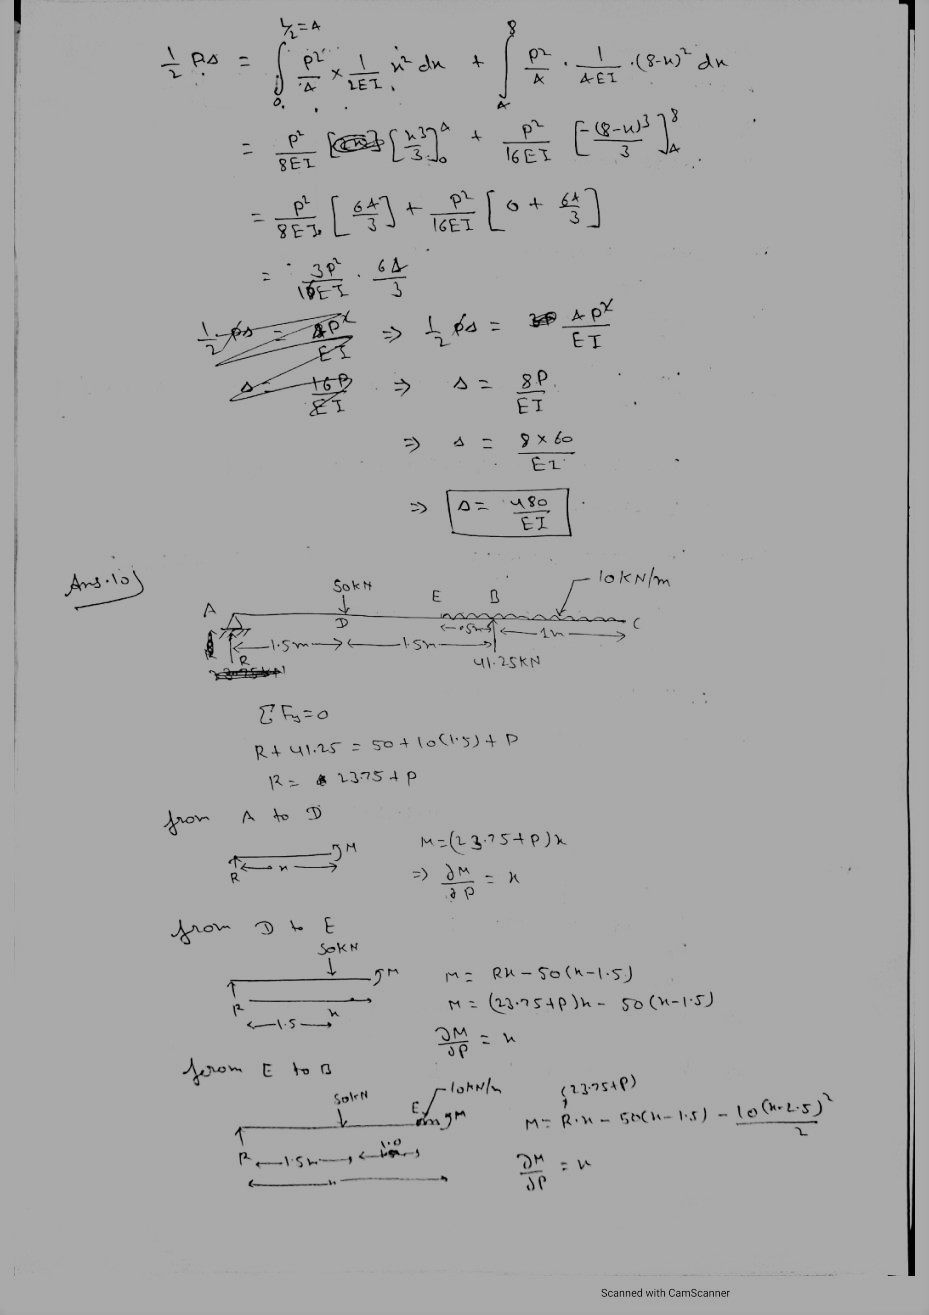 1/2 PΔ = ∫₀^(L/2=4) P²/4 × 1/2EI x² dx + ∫₄⁸ P²/4 · 1/4EI · (8-x)² dx
= P²/8EI [x³/3]₀⁴ + P²/16EI [-(8-x)³/3]₄⁸
= P²/8EI [64/3] + P²/16EI [0 + 64/3]
= 3P²/16EI · 64/3
⇒ 1/2 PΔ = 4P²/EI
⇒ Δ = 8P/EI
⇒ Δ = 8×60/EI
⇒ Δ = 480/EI
Ans.10)
50KN E B 10KN/m
A D C
.5m 1m
1.5m 1.5m
R 41.25KN
ΣFy=0
R+41.25 = 50+10(1.5)+P
R = 23.75+P
from A to D
M=(23.75+P)x
M
R x
⇒ ∂M/∂P = x
from D to E
50KN
M
M = Rx-50(x-1.5)
R x
M = (23.75+P)x - 50(x-1.5)
1.5
∂M/∂P = x
from E to B
50KN 10KN/m
(23.75+P)
E M
M = R.x - 50(x-1.5) - 10(x-2.5)²/2
R 1.5m 1.0
∂M/∂P = x
x
Scanned with CamScanner